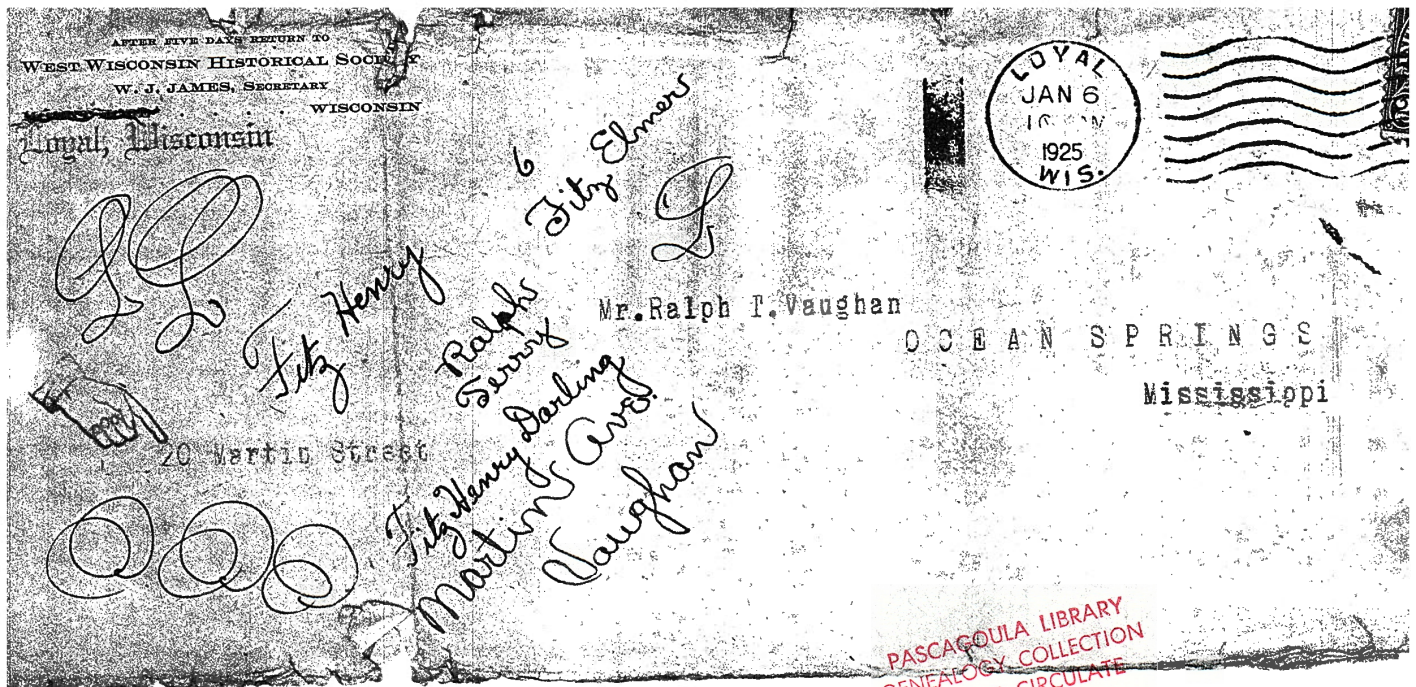 AFTER FIVE DAYS RETURN TO
WEST WISCONSIN HISTORICAL SOCIETY
W. J. JAMES, SECRETARY
WISCONSIN
Loyal, Wisconsin
LOYAL
JAN 6
1925
WIS.
L L
6
Fitz Elmer
L
Fitz Henry
Ralph
Terry
Fitz Henry Darling
Martin Ave.
Vaughan
Mr. Ralph T. Vaughan
OCEAN SPRINGS
Mississippi
20 Martin Street
PASCAGOULA LIBRARY
GENEALOGY COLLECTION
CIRCULATE